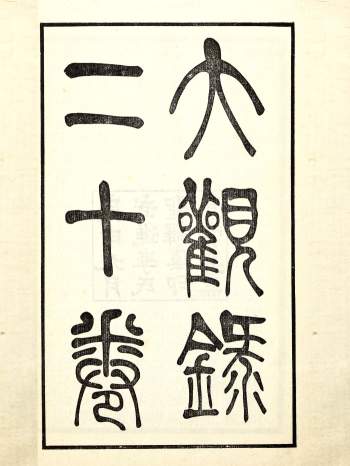 大觀錄
二十卷